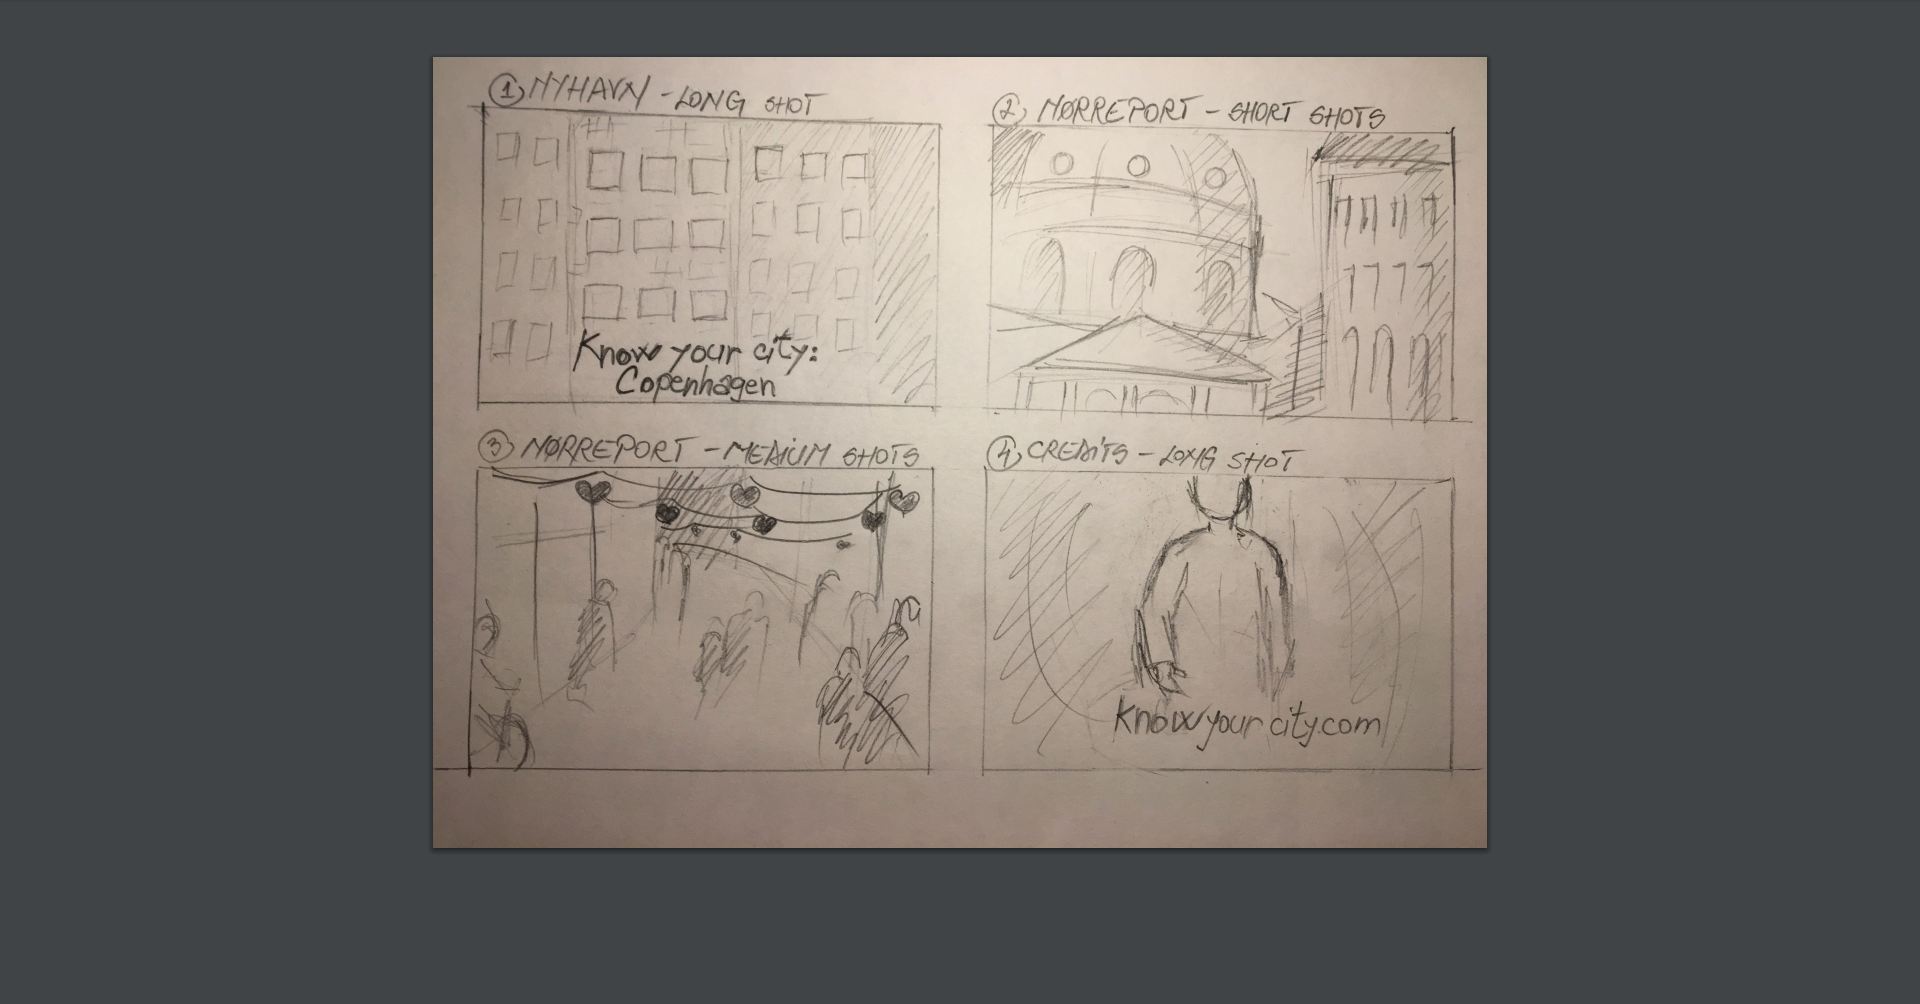 1 NYHAVN - LONG SHOT
Know your city:
Copenhagen
2 NØRREPORT - SHORT SHOTS
3 NØRREPORT - MEDIUM SHOTS
4 CREDITS - LONG SHOT
Knowyourcity.com